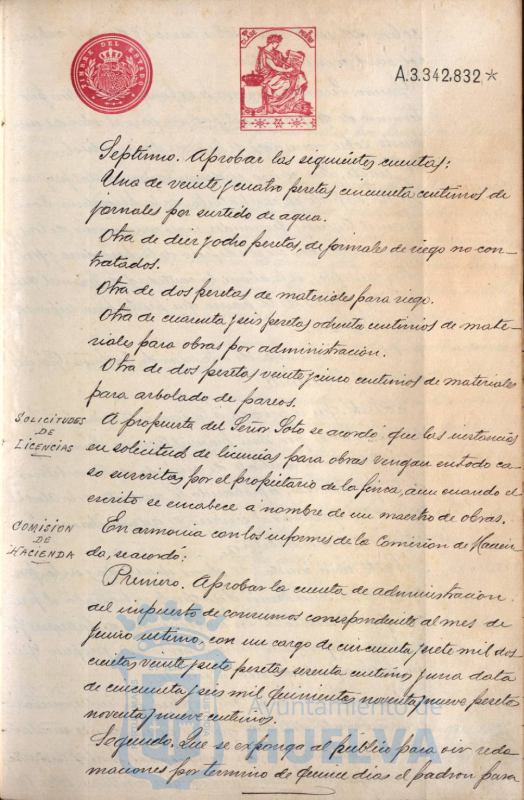 TIMBRE DEL ESTADO
CLASE
A.3.342.832*
Septimo. Aprobar las siguientes cuentas:
Una de veinte y cuatro pesetas cincuenta centimos de
jornales por surtido de agua.
Otra de diez y ocho pesetas, de jornales de riego no con-
tratados.
Otra de dos pesetas de materiales para riego.
Otra de cuarenta y seis pesetas ochenta centimos de mate-
riales para obras por administración.
Otra de dos pesetas veinte y cinco centimos de materiales
para arbolado de paseos.
SOLICITUDES
DE
LICENCIAS
A propuesta del Señor Soto se acordó que las instancias
en solicitud de licencias para obras vengan en todo ca-
so suscritas por el propietario de la finca, aun cuando el
escrito se encabece a nombre de un maestro de obras.
COMISION
DE
HACIENDA
En armonia con los informes de la Comision de Hacien-
da, se acordó:
Primero. Aprobar la cuenta de administracion
del impuesto de consumos correspondiente al mes de
Junio ultimo, con un cargo de cincuenta y siete mil dos-
cientas veinte y siete pesetas setenta centimos y una data
de cincuenta y seis mil quinientas noventa y nueve pesetas
noventa y nueve centimos.
Segundo. Que se exponga al publico para oir recla-
maciones por termino de quince dias el padron para
Ayuntamiento de
HUELVA